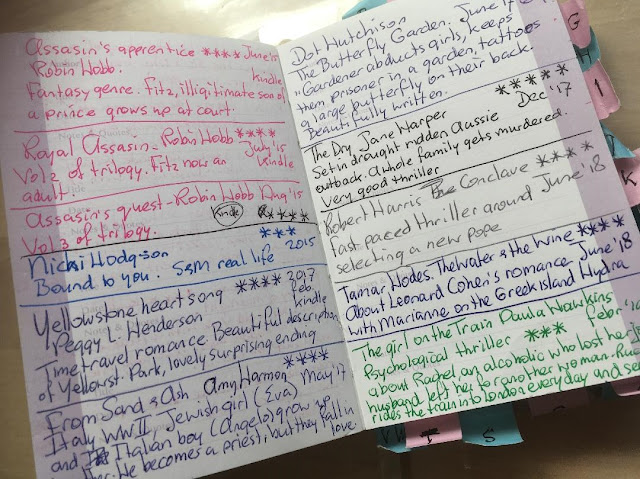 Assasin's apprentice **** June '15
Robin Hobb.
Kindle
Fantasy genre. Fitz, illigitimate son of
a prince grows up at court.
Royal Assasin - Robin Hobb ****
Vol 2 of trilogy. July '15
Fitz now an Kindle
adult.
Assasin's quest - Robin Hobb Aug '15
Kindle ****
Vol 3 of trilogy.
Nicki Hodgson ***
2015
Bound to you. S&M real life
Yellowstone heart song **** 2017
Feb.
Peggy L. Henderson Kindle
Time travel romance. Beautiful description
of Yellowst. Park, lovely surprising ending
****
From Sand & Ash Amy Harmon May '17
Italy WWII Jewish girl (Eva)
and Italian boy (Angelo) grow up
He becomes a priest, but they fall in
love.
Dot Hutchison
The Butterfly Garden. June '17
"Gardener" abducts girls, keeps
them prisoner in a garden, tattoos
a large butterfly on their back.
Beautifully written.
*****
The Dry Jane Harper Dec '17
Set in drought ridden Aussie
outback. A whole family gets murdered.
Very good thriller
Robert Harris Conclave ****
fast paced thriller around June '18
selecting a new pope
Tamar Hodes. The water & the wine ****
About Leonard Cohen's romance June '18
with Marianne on the Greek island Hydra
The girl on the Train Paula Hawkins
Psychological thriller *** Febr.
about Rachel an alcoholic who lost her
husband left her for another woman.
rides the train into London everyday and
G
I
K
T
S